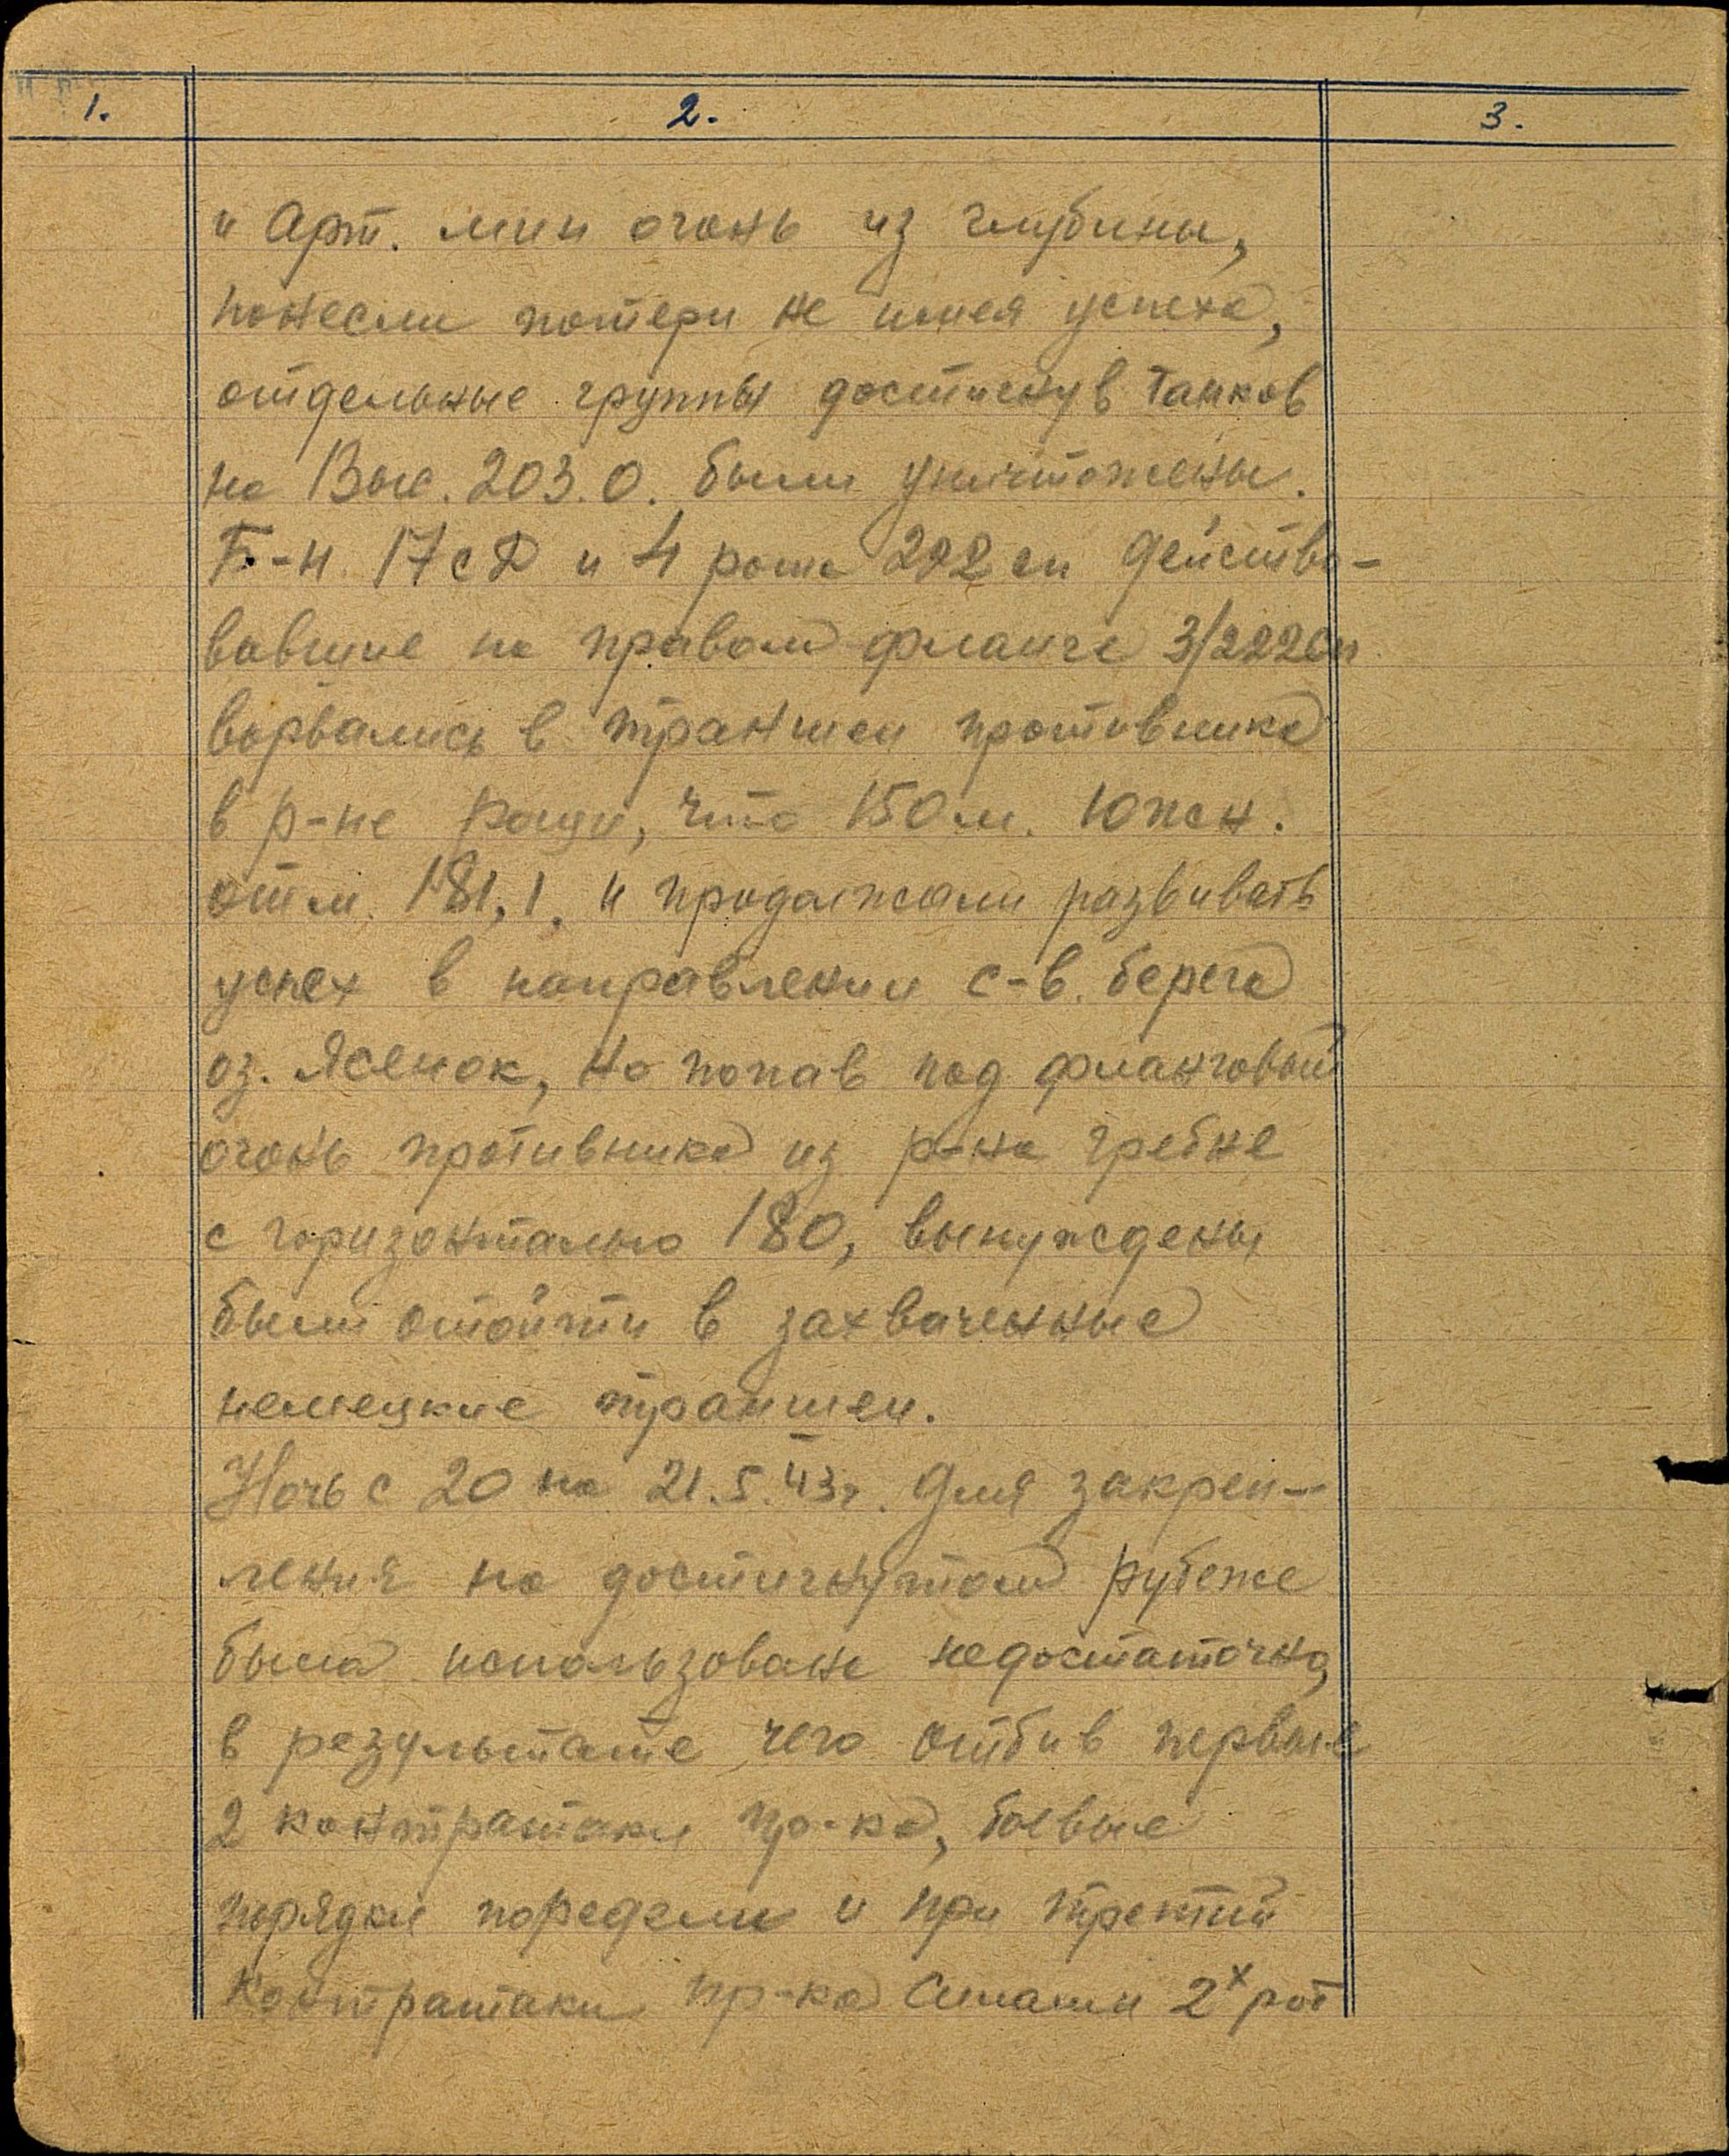 1. 2. 3.
и Арт. мин огонь из глубины,
понесли потери не имея успеха,
отдельные группы достигнув танков
на Выс. 203.0. были уничтожены.
Б-н 17 сД и 4 рота 222 сп действо-
вавшие на правом фланге 3/222 сп
ворвались в траншеи противника
в р-не рощи, что 150 м. Южн.
отм. 181,1. и продолжали развивать
успех в направлении с-в. берега
оз. Ясенок, но попав под фланговый
огонь противника из р-на гребне
с горизонталью 180, вынуждены
были отойти в захваченные
немецкие траншеи.
Ночь с 20 на 21.5.43г. для закреп-
ления на достигнутом рубеже
была использована недостаточно,
в результате чего отбив первые
2 контратаки пр-ка, боевые
порядки поредели и при третий
контратаки пр-ка силами 2х рот